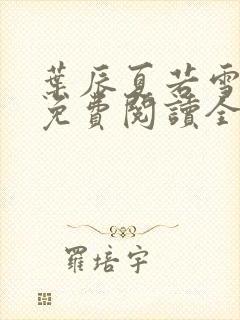 葉辰夏若雪
免費閱讀全
羅培宇